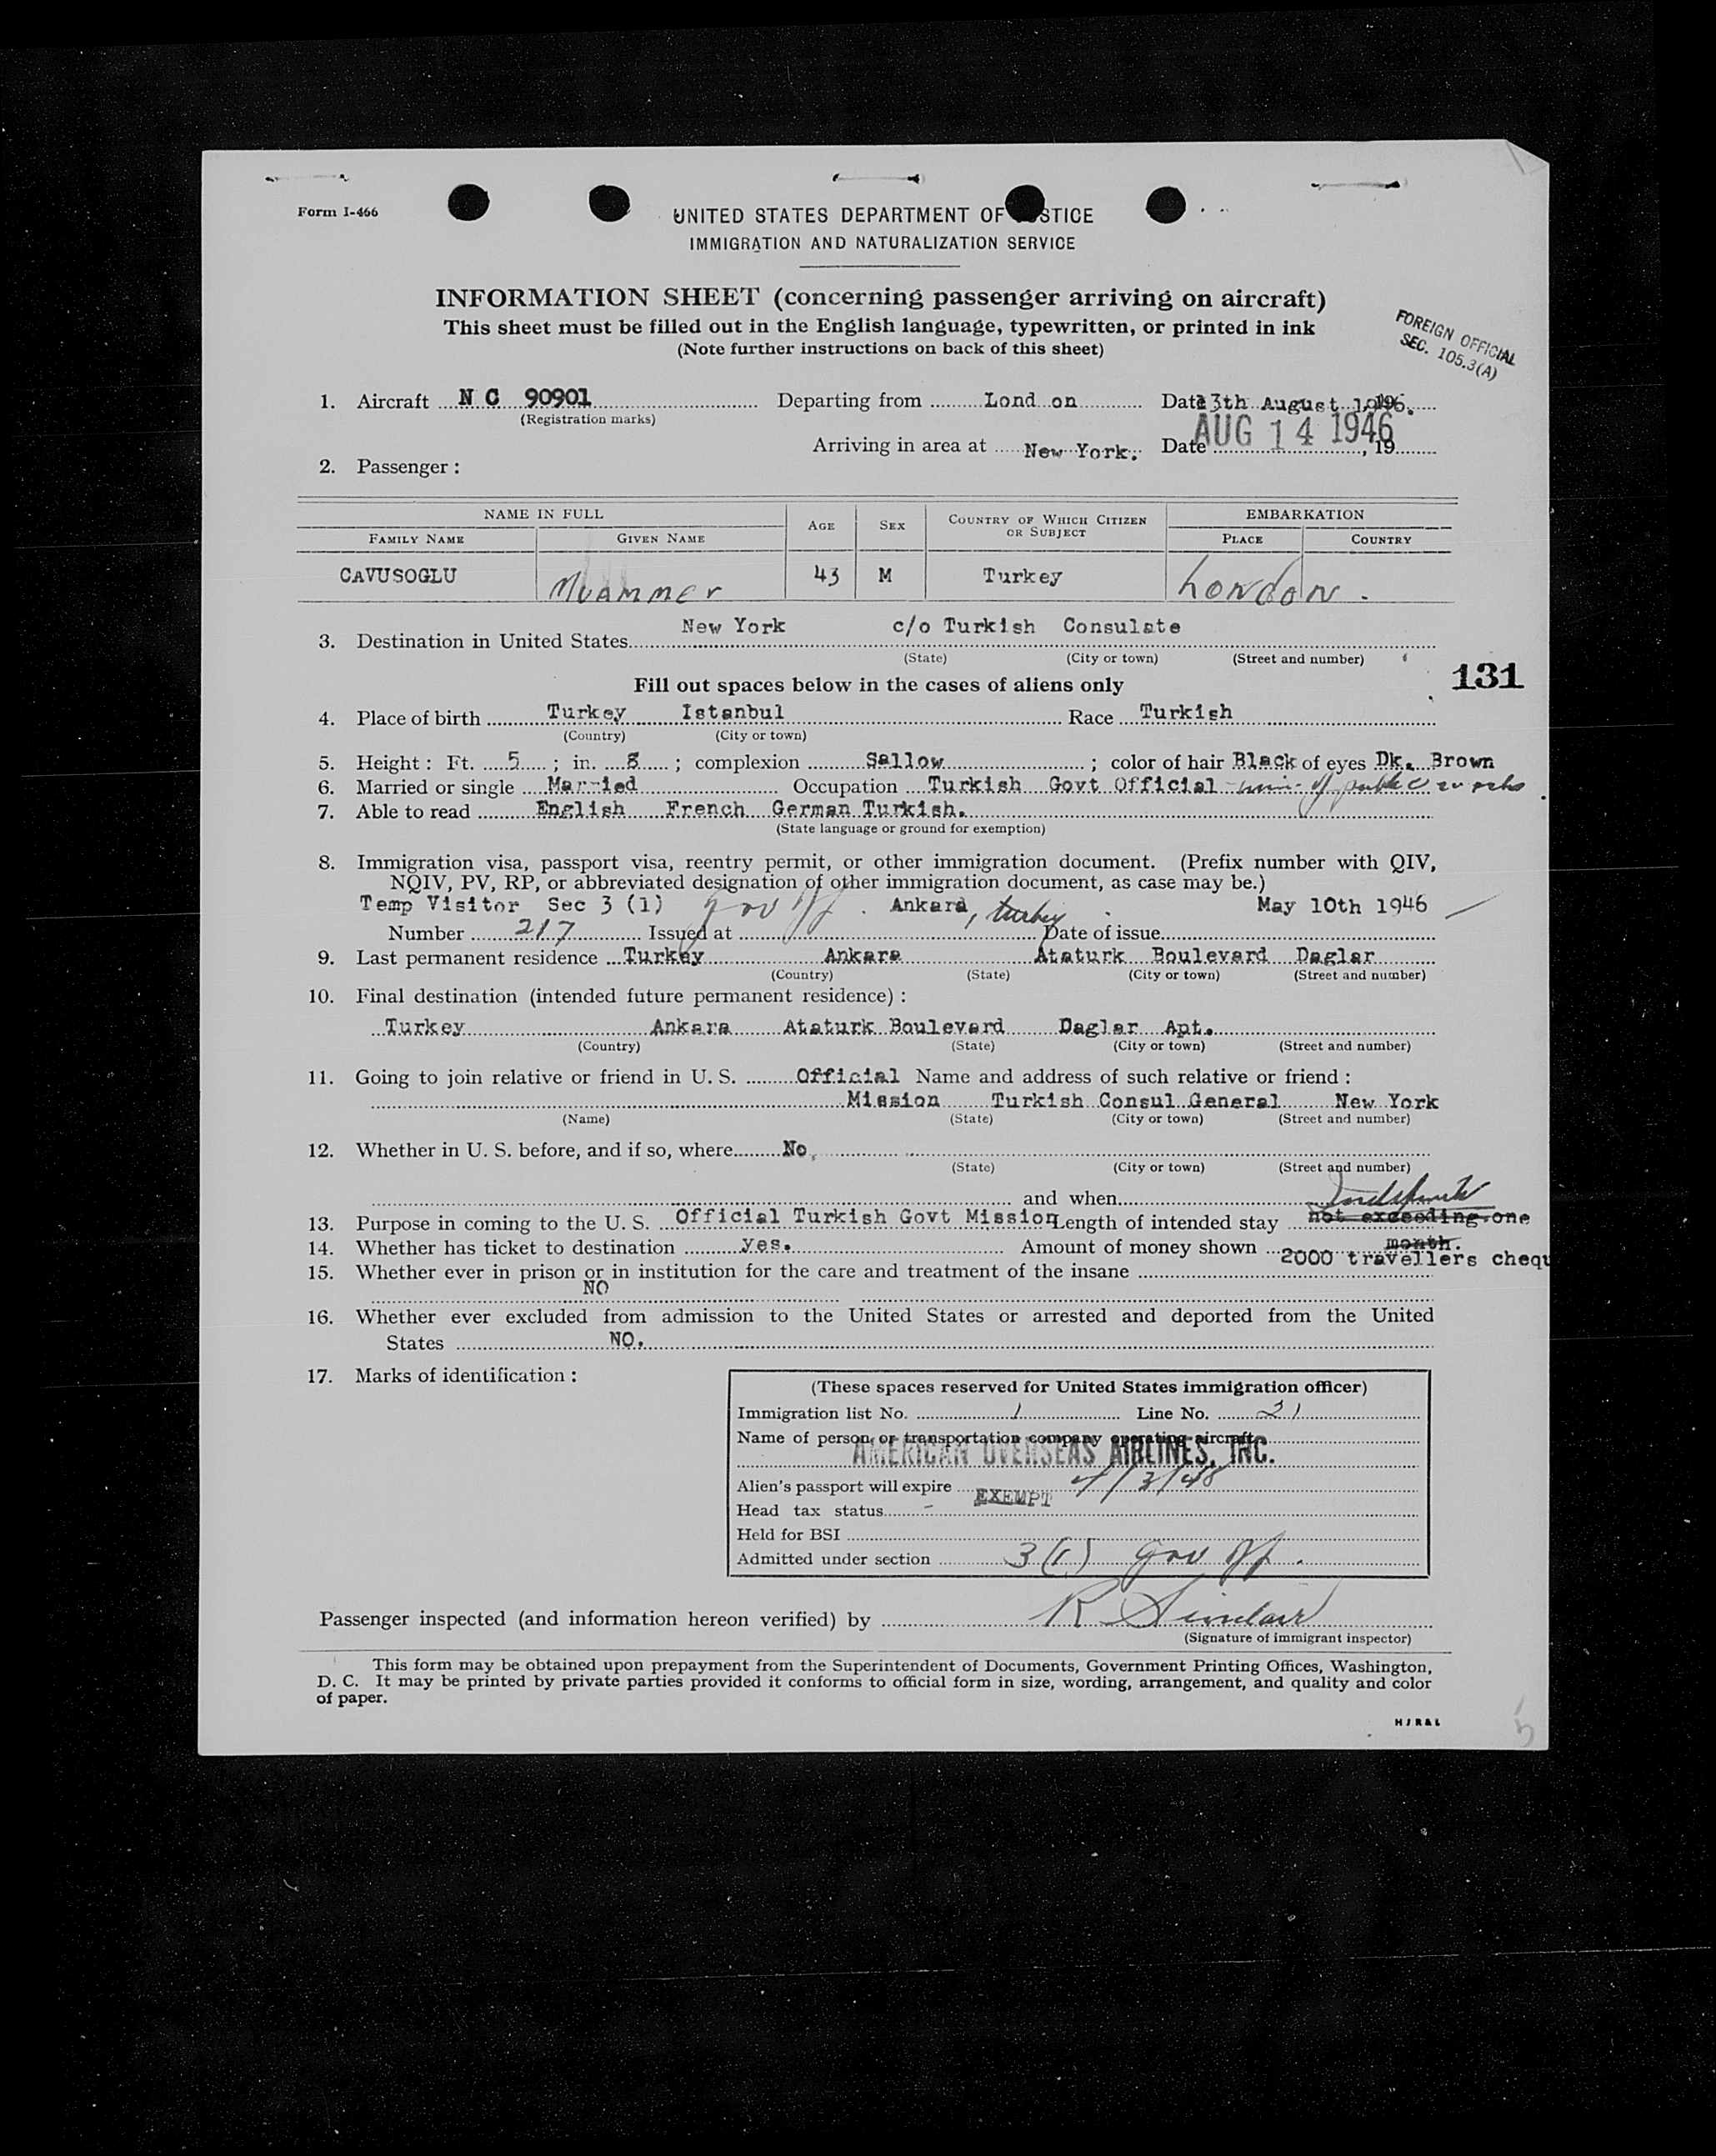 Form I-466
UNITED STATES DEPARTMENT OF STICE
IMMIGRATION AND NATURALIZATION SERVICE
INFORMATION SHEET (concerning passenger arriving on aircraft)
This sheet must be filled out in the English language, typewritten, or printed in ink
(Note further instructions on back of this sheet)
FOREIGN OFFICIAL
SEC. 105.3(A)
1. Aircraft N C 90901 Departing from Lond on Date 13th August 1946.
(Registration marks)
Arriving in area at New York. Date AUG 14 1946, 19
2. Passenger:
NAME IN FULL AGE SEX COUNTRY OF WHICH CITIZEN OR SUBJECT EMBARKATION
FAMILY NAME GIVEN NAME PLACE COUNTRY
CAVUSOGLU Muammer 43 M Turkey London.
New York c/o Turkish Consulate
3. Destination in United States
(State) (City or town) (Street and number)
131
Fill out spaces below in the cases of aliens only
4. Place of birth Turkey Istanbul Race Turkish
(Country) (City or town)
5. Height: Ft. 5; in. 8; complexion Sallow; color of hair Black of eyes Dk. Brown
6. Married or single Married Occupation Turkish Govt Official - min. of public works.
7. Able to read English French German Turkish.
(State language or ground for exemption)
8. Immigration visa, passport visa, reentry permit, or other immigration document. (Prefix number with QIV,
NQIV, PV, RP, or abbreviated designation of other immigration document, as case may be.)
Temp Visitor Sec 3 (1) gov off. Ankara, turkey. May 10th 1946
Number 217 Issued at Date of issue
9. Last permanent residence Turkey Ankara Ataturk Boulevard Daglar
(Country) (State) (City or town) (Street and number)
10. Final destination (intended future permanent residence):
Turkey Ankara Ataturk Boulevard Daglar Apt.
(Country) (State) (City or town) (Street and number)
11. Going to join relative or friend in U. S. Official Name and address of such relative or friend:
Mission Turkish Consul General New York
(Name) (State) (City or town) (Street and number)
12. Whether in U. S. before, and if so, where No.
(State) (City or town) (Street and number)
and when Indefinite
13. Purpose in coming to the U. S. Official Turkish Govt Mission Length of intended stay not exceeding one
month.
14. Whether has ticket to destination yes. Amount of money shown 2000 travellers chequ
15. Whether ever in prison or in institution for the care and treatment of the insane
NO
16. Whether ever excluded from admission to the United States or arrested and deported from the United
States NO.
17. Marks of identification:
(These spaces reserved for United States immigration officer)
Immigration list No. 1 Line No. 21
Name of person, or transportation company operating aircraft
AMERICAN OVERSEAS AIRLINES, INC.
Alien's passport will expire 4/3/48
EXEMPT
Head tax status -
Held for BSI
Admitted under section 3(1) gov off.
Passenger inspected (and information hereon verified) by R Sinclair
(Signature of immigrant inspector)
This form may be obtained upon prepayment from the Superintendent of Documents, Government Printing Offices, Washington,
D. C. It may be printed by private parties provided it conforms to official form in size, wording, arrangement, and quality and color
of paper.